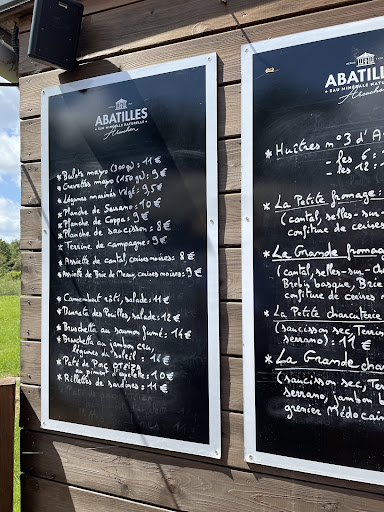 ABATILLES
EAU MINÉRALE NATURELLE
Arcachon
* Bulots mayo (300gr) : 11€
* Crevettes mayo (150gr) : 9€
* Légumes marinés vdgt : 9,5€
* Planche de Serrano : 10€
* Planche de Coppa : 9€
* Planche de saucisson : 8€
* Terrine de campagne : 9€
* Assiette de cantal, cerises noires : 8€
* Assiette de Brie de Meaux, cerises noires : 9€
* Camembert rôti, salade : 11€
* Burrata des Pouilles, salade : 12€
* Bruschetta au saumon fumé : 14€
* Bruschetta au jambon cru,
légumes du soleil : 14€
* Paté du PAC
au piment d'espelette : 10€
* Rillettes de sardines : 11€
ABATILLES
EAU MINÉRALE NATURELLE
Arcachon
* Huîtres n°3 d'A
- les 6 :
- les 12 :
* La Petite fromage
(cantal, selles-sur
confiture de cerises
* La Grande fromag
(cantal, selles-sur-ch
Brebis basque, Brie
confiture de cerises
* La Petite charcuterie
(saucisson sec, Ter
serrano) : 11€
* La Grande cha
(saucisson sec, Te
serrano, jambon b
grenier Médocain